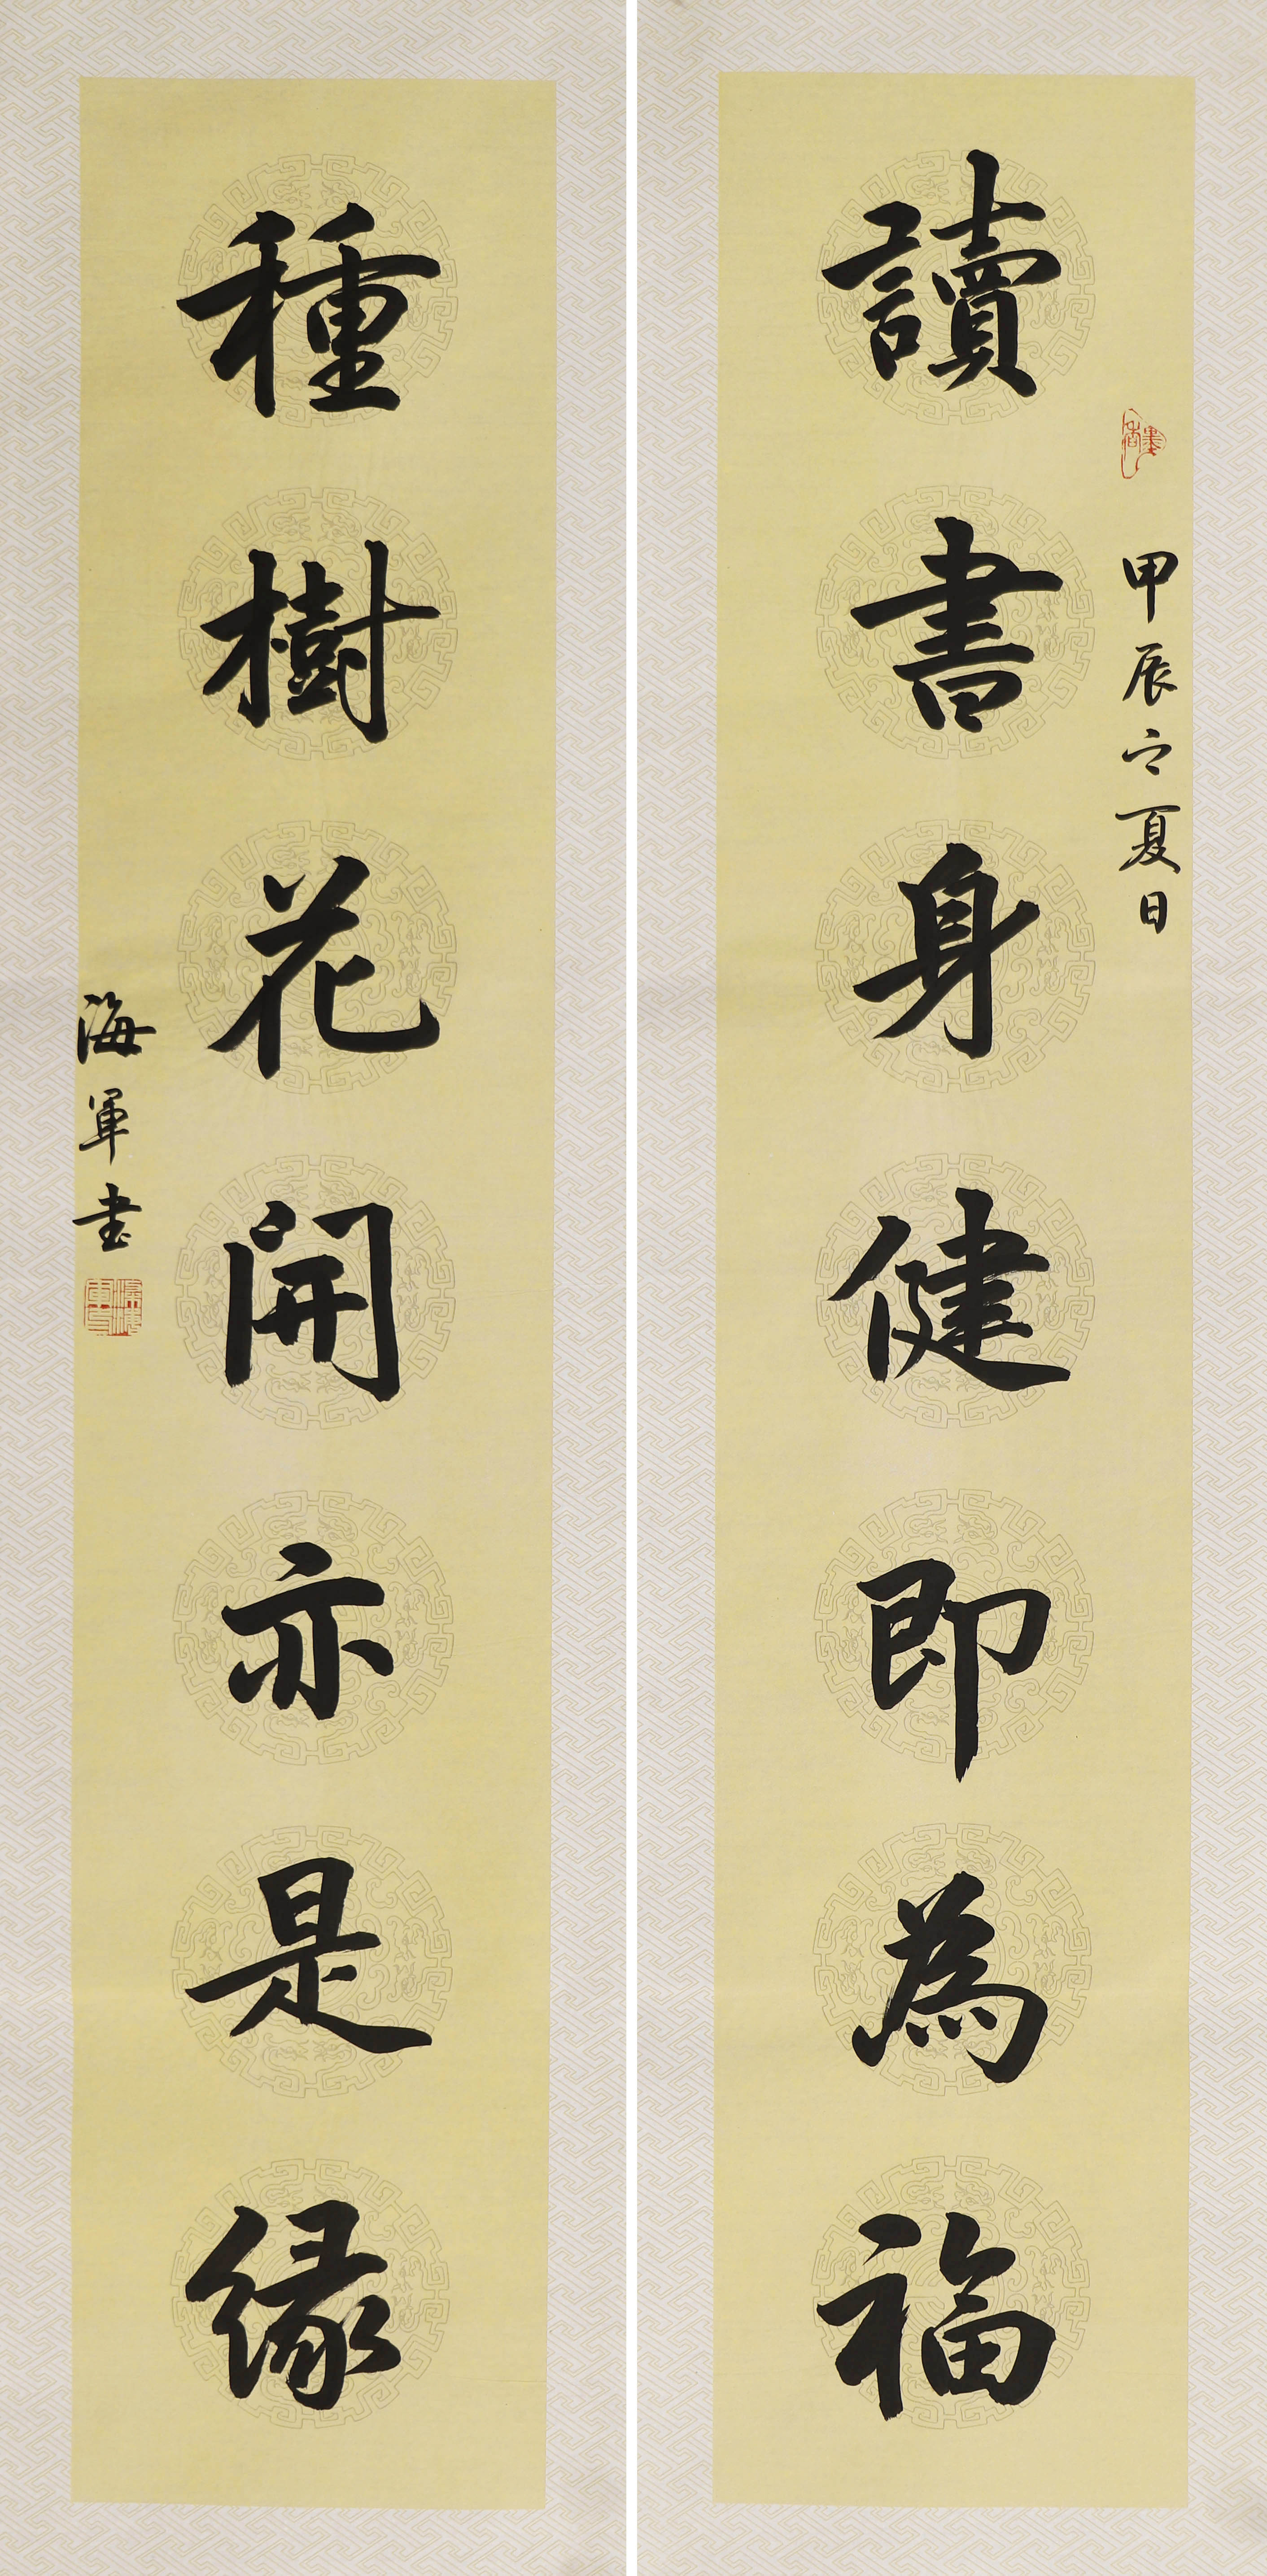 甲辰之夏日
讀書身健即為福
種樹花開亦是緣
海軍書